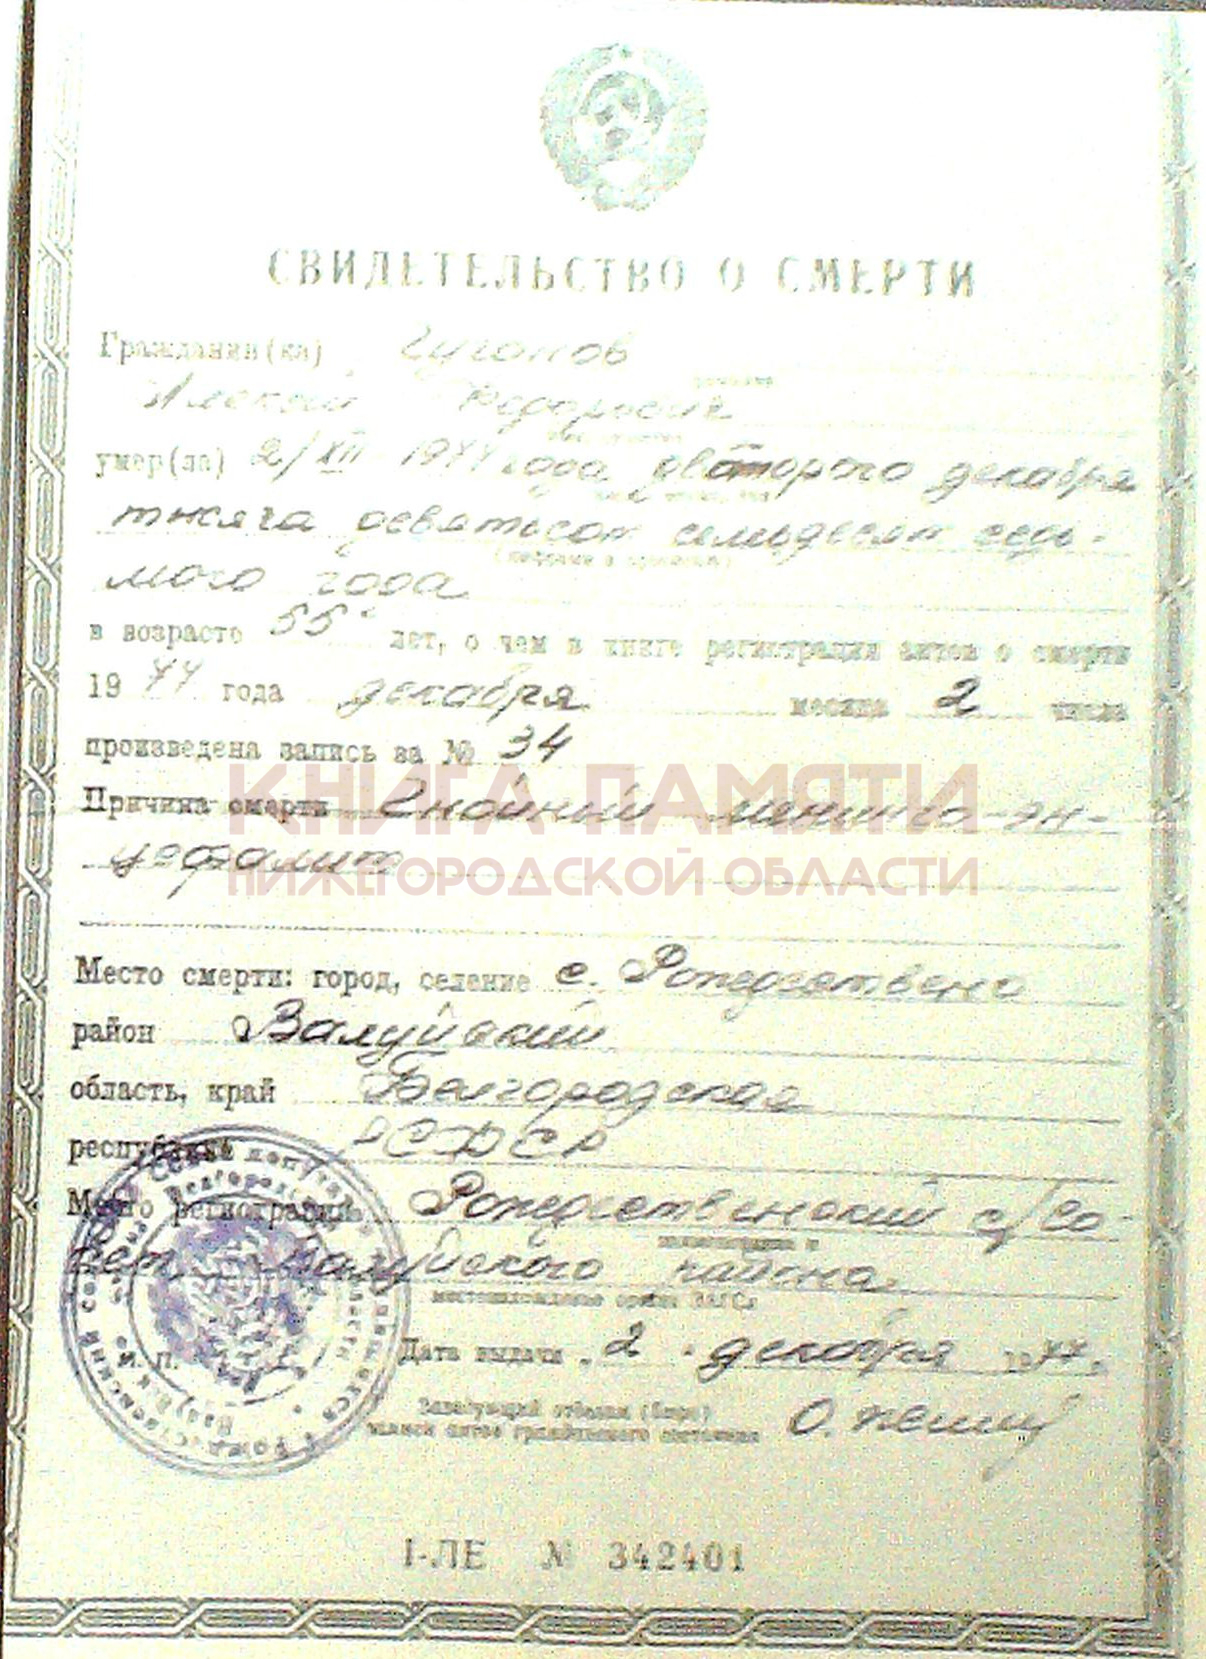 СВИДЕТЕЛЬСТВО О СМЕРТИ
Гражданин(ка)
Алексей Федорович
умер(ла) 2/XII 1977 года второго декабря
тысяча девятьсот семьдесят седь-
мого года
в возрасте 55 лет, о чем в книге регистрации актов о смерти
19 77 года декабря месяца 2 числа
произведена запись за № 34
КНИГА ПАМЯТИ
Причина смерти Гнойный менинго-эн-
цефалит
НИЖЕГОРОДСКОЙ ОБЛАСТИ
Место смерти: город, селение с. Рождествено
район Валуйский
область, край Белгородская
республика РСФСР
Место регистрации Рождественский с/Со-
вет Валуйского района
местонахождение органа ЗАГСа
Дата выдачи „2" декабря 1977.
М. П.
Заведующий отделом (бюро)
записи актов гражданского состояния
I-ЛЕ № 342401